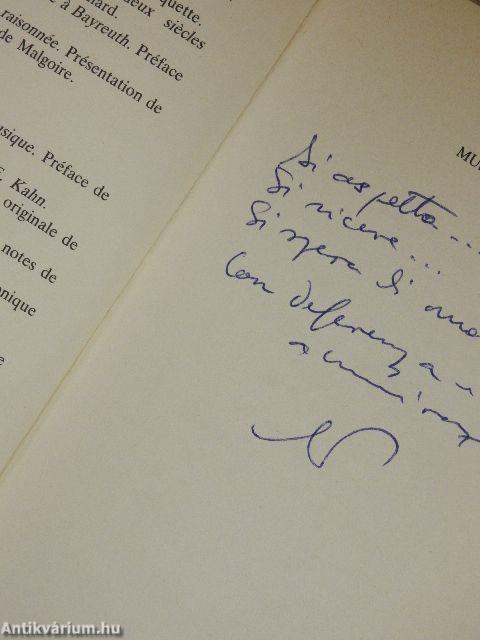 quette.
lard.
deux siècles
à Bayreuth. Préface
raisonnée. Présentation de
de Malgoire.
usique. Préface de
E. Kahn.
originale de
notes de
onique
e
MU
Si aspetta...
Si riceve...
Si spera Si
Con deferenza
Antikvárium.hu